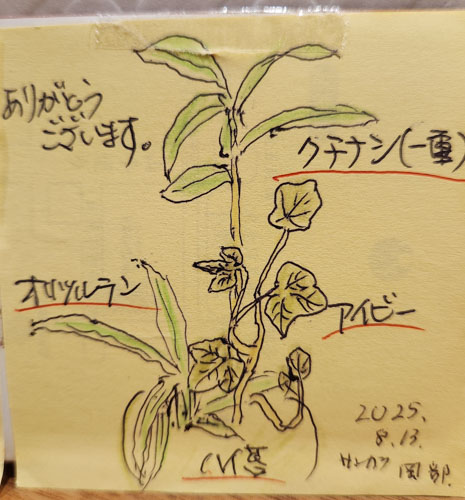 ありがとう
ございます。
クチナシ(一重)
オリヅルラン
アイビー
ハイ苔
2025.
8.13.
岡部